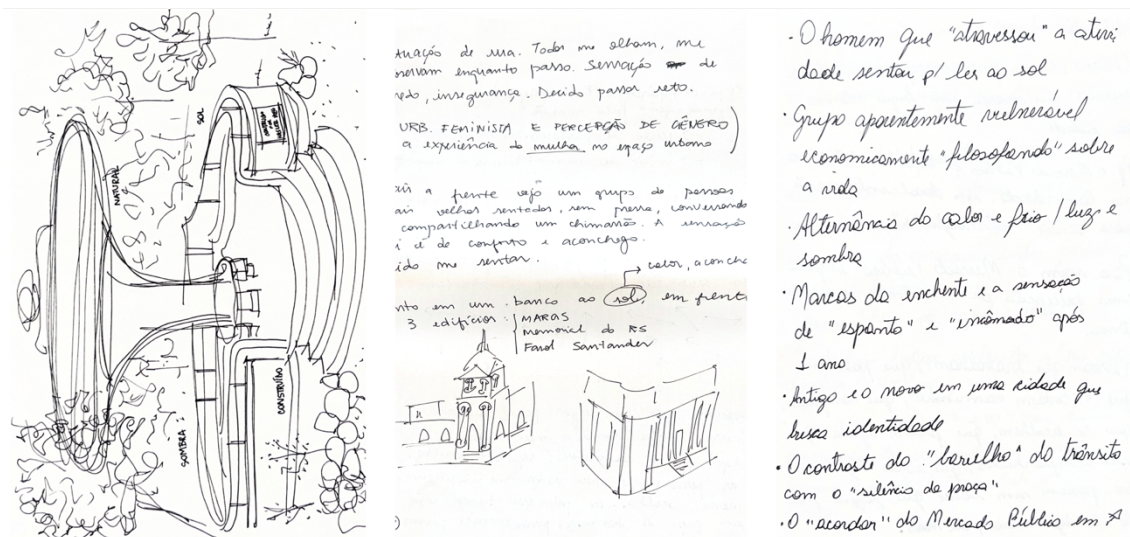 NATURAL
SOL
SOMBRA
CONSTRUÍDO
tuação de rua. Todos me olham, me
servam enquanto passo. Sensação de
edo, insegurança. Decido passar reto.
URB. FEMINISTA E PERCEPÇÃO DE GÊNERO)
a experiência da mulher no espaço urbano
ais a frente vejo um grupo de pessoas
ais velhas sentadas, sem pressa, conversando
compartilhando um chimarrão. A sensação
i é de conforto e aconchego.
ido me sentar.
calor, aconche
nto em um banco ao sol, em frent
3 edifícios: MARGS
Memorial do RS
Farol Santander
· O homem que "atravessou" a ativi
dade sentar p/ ler ao sol
· Grupo aparentemente vulnerável
economicamente "filosofando" sobre
a vida
· Alternância do calor e frio / luz e
sombra
· Marcas da enchente e a sensação
de "espanto" e "incômodo" após
1 ano
· Antigo e o novo em uma cidade que
busca identidade
· O contraste do "barulho" do trânsito
com o "silêncio da praça"
· O "acordar" do Mercado Público em